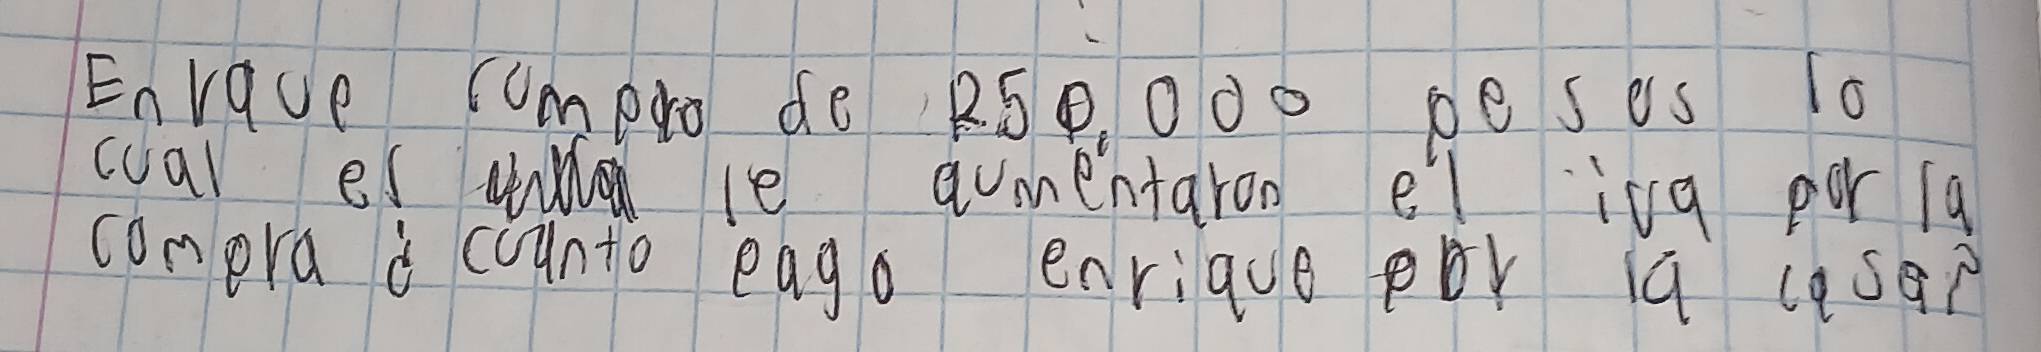 Enrque compro de 250,000 pesos lo
cual el le aumentaron el iva por la
compra ¿ cuanto pago enrique por la casa?